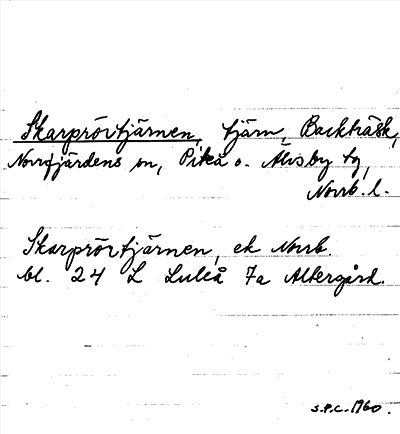 Skarprörtjärnen, tjärn, Backträsk,
Norrfjärdens sn, Piteå o. Älvsby tg,
Norrb. l.
Skarprörtjärnen, ek Norrb.
bl. 24 L Luleå 7a Altersgård.
S.P.C. 1960.